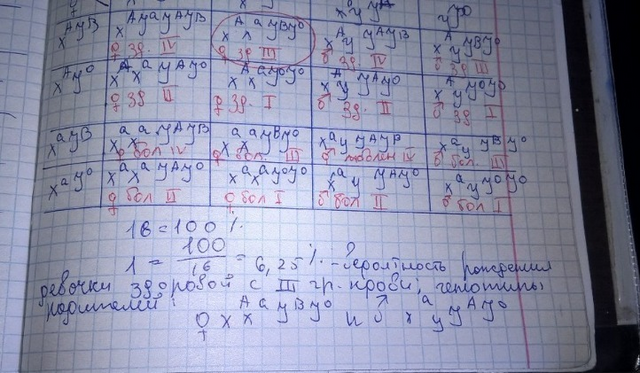 X^A y^B X^A X^a y^A y^B X^A X^a y^B y^0 X^A y y^A y^B X^A y y^B y^0
♀ зд. IV ♀ зд. III ♂ зд. IV ♂ зд III
X^A y^0 X^A X^a y^A y^0 X^A X^a y^0 y^0 X^A y y^A y^0 X^A y y^0 y^0
♀ зд II ♀ зд. I ♂ зд. II ♂ зд I
X^a y^B X^a X^a y^A y^B X^a X^a y^B y^0 X^a y y^A y^B X^a y y^B y^0
♀ бол IV ♀ бол. III IV ♂ бол. III
X^a y^0 X^a X^a y^A y^0 X^a X^a y^0 y^0 X^a y y^A y^0 X^a y y^0 y^0
♀ бол II ♀ бол I ♂ бол II ♂ бол I
16 = 100 %
1 = 100/16 = 6,25 % - вероятность рождения
девочки здоровой с III гр. крови, генотипы
родителей:
♀ X^A X^a y^B y^0 и ♂ X^a y y^A y^0